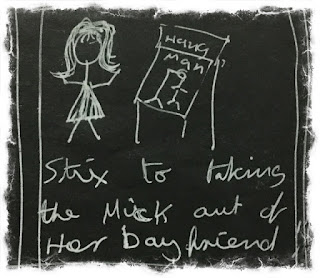 Hang
Man
Stix to taking
the Mick out of
Her boyfriend